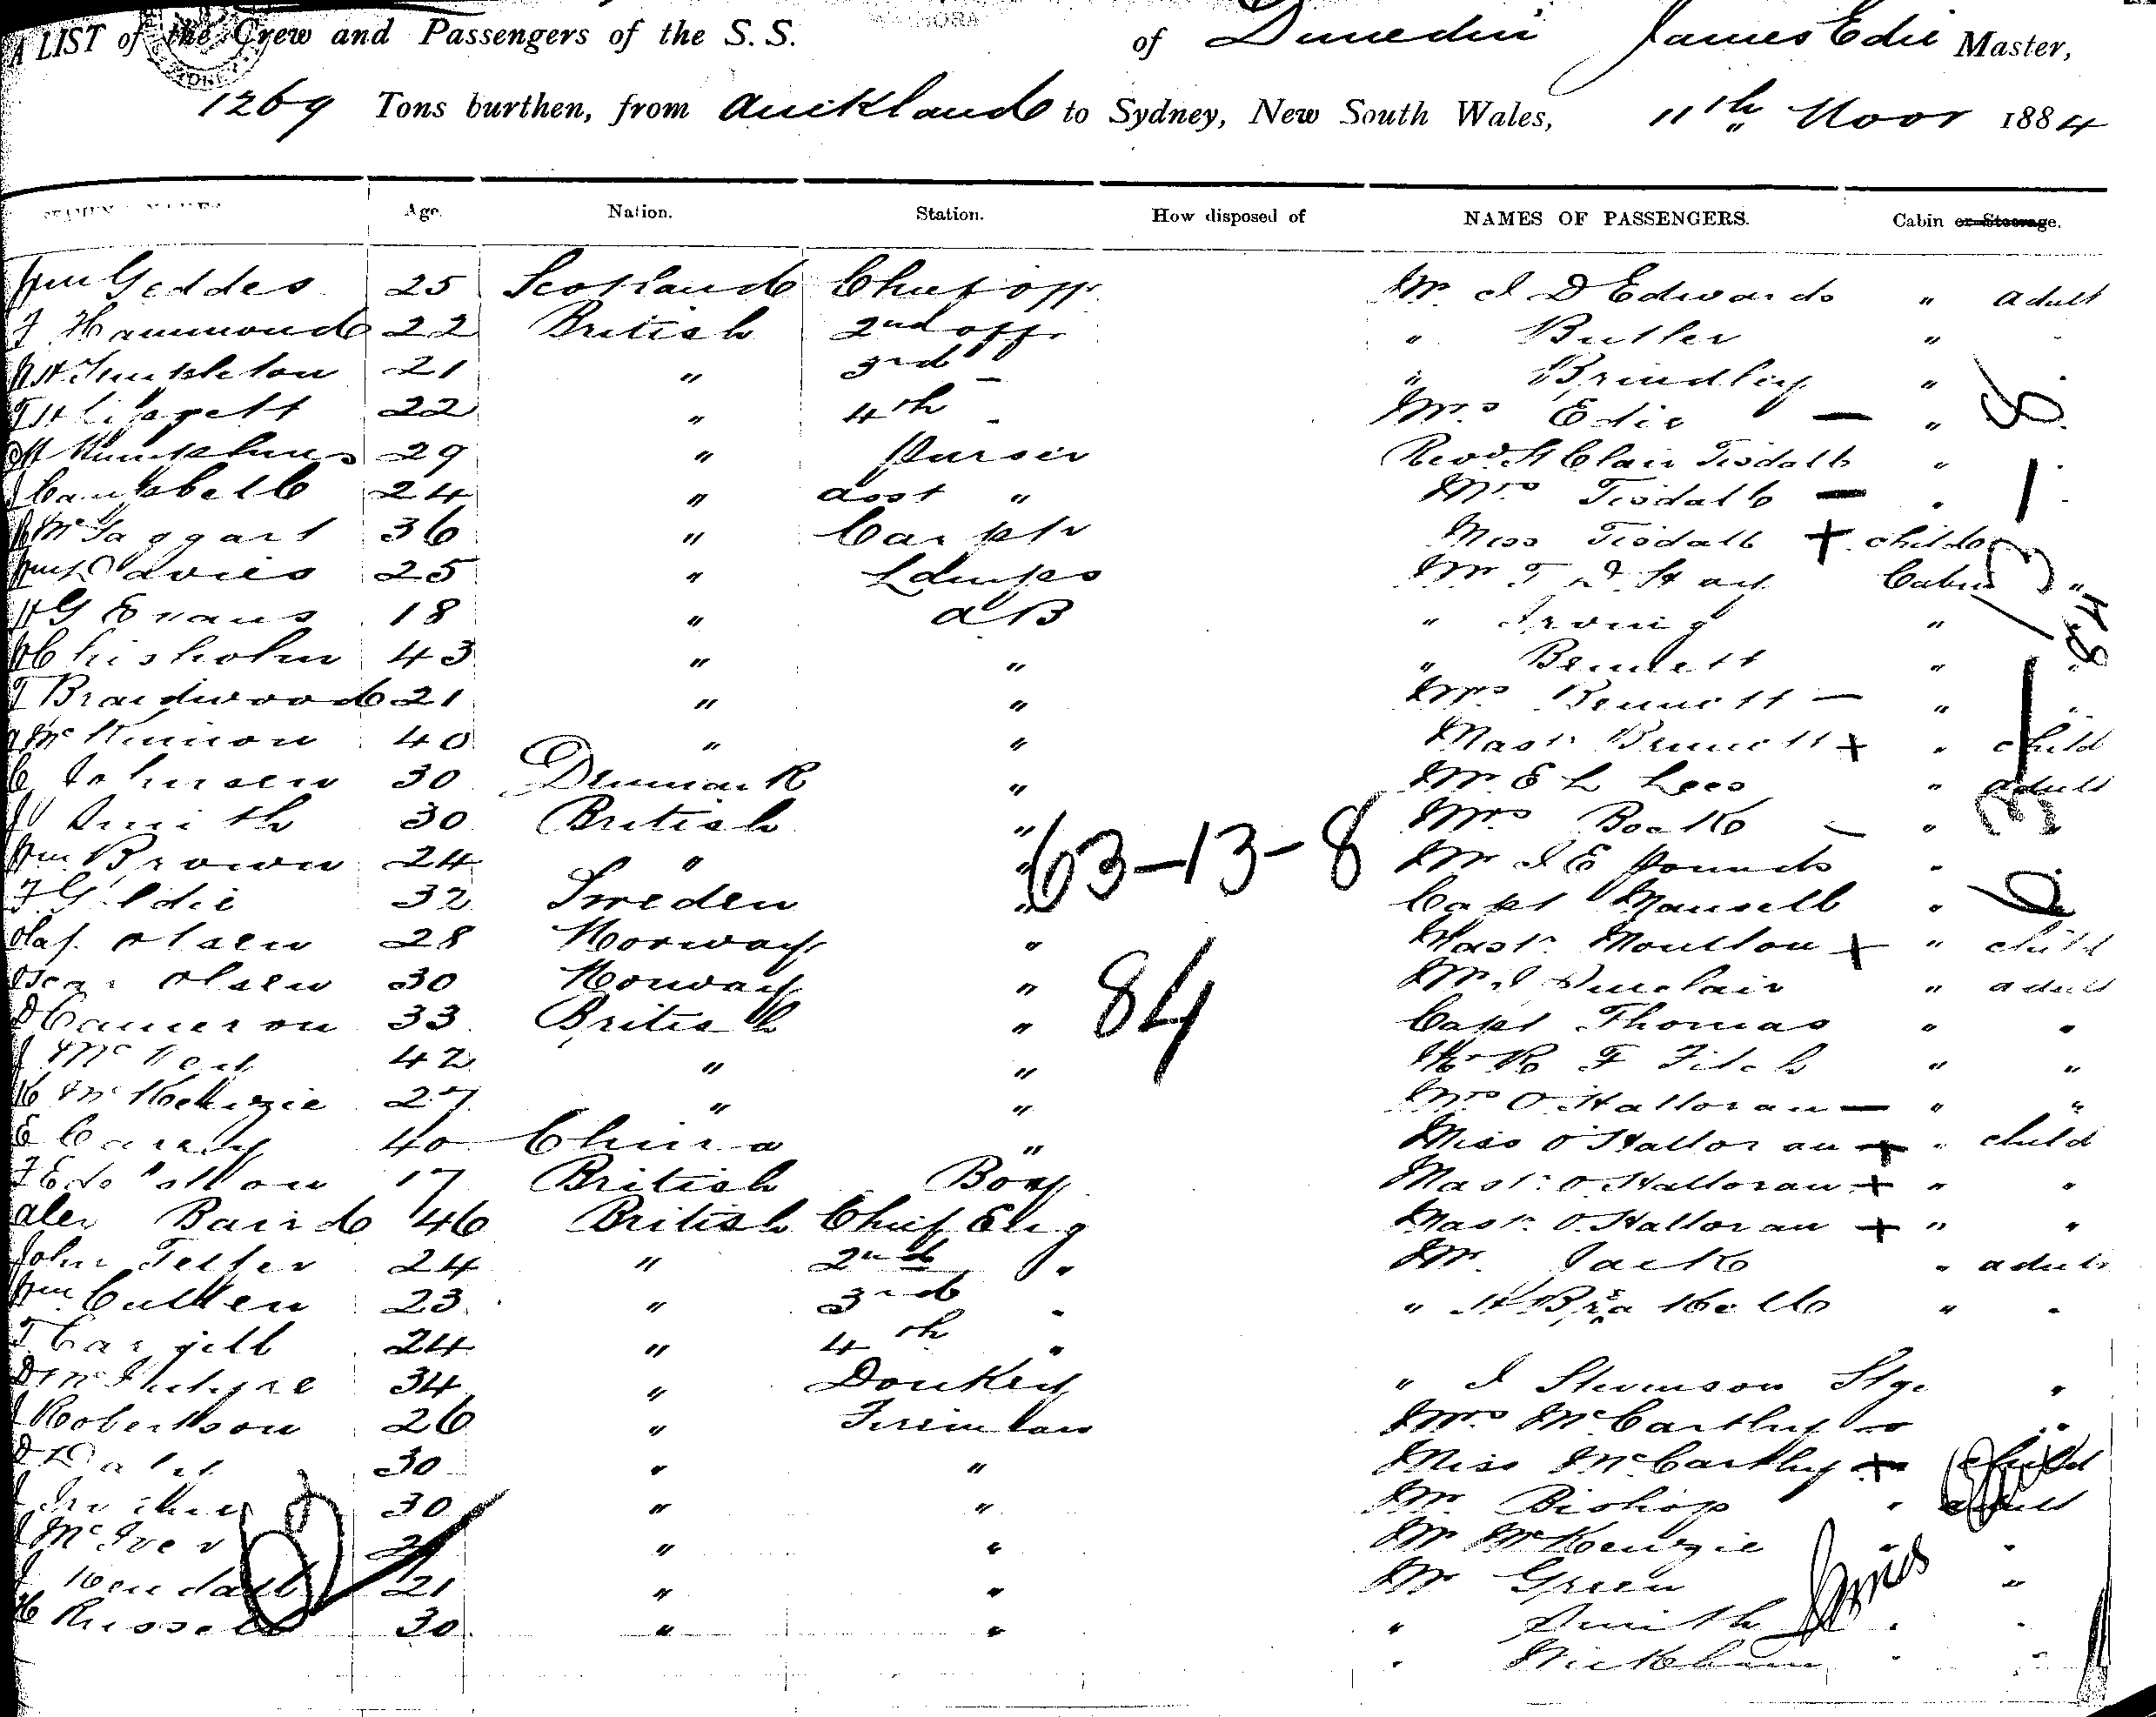 A LIST of the Crew and Passengers of the S. S. of Dunedin James Edie Master,
1269 Tons burthen, from Auckland to Sydney, New South Wales, 11th Novr 1884
Age. Nation. Station. How disposed of NAMES OF PASSENGERS. Cabin or Steerage.
Wm Geddes 25 Scotland Chief Off Mr. J D Edwards " adult
F Hammond 22 British 2nd off " Butler "
Templeton 21 " 3rd " Brindley "
22 " 4th Mrs Edie — "
Humphries 29 " Purser Revd St Clair Tisdall "
J Campbell 24 " asst " Mrs Tisdall —
McTaggart 36 " Carptr Miss Tisdall + child
Wm Davies 25 " Lamps Mr T Hay Cabin "
H G Evans 18 " AB " Irving "
Chisholm 43 " " " Bennett "
T Braidwood 21 " " Mrs Bennett — "
McKinnon 40 " " Mastr Bennett + " child
C Johnsen 30 Denmark " Mr E L Lees " adult
J Smith 30 British " Mrs — "
Wm Brown 24 " " Mr J E Pounds "
32 Sweden " Capt Mansell "
Olaf Olsen 28 Norway " Mastr Moulton + " child
Oscar Olsen 30 Norway " Mr J Sinclair " adult
D Cameron 33 British " Capt Thomas " "
J 42 " " Mr R F Fitch " "
K McKenzie 27 " " Mrs O'Halloran — " "
E 40 China " Miss O'Halloran + " child
17 British Boy Mastr O'Halloran + " "
Alex Baird 46 British Chief Eng Mastr O'Halloran + " "
John Telfer 24 " 2nd " Mr. Jack " adult
Wm Cullen 23 " 3rd " " H " "
T Cargill 24 " 4th "
D McIntyre 34 " Donkey " J Stevenson Stge "
J Robertson 26 " Fireman Mrs McCarthy — "
D Daly 30 " " Miss McCarthy + child
J 30 " " Mr Bishop " adult
J McIver " " Mr McKenzie " "
J Kendall 21 " " Mr Green "
H Russell 30 " " " Smith " "
" Wickham " "
63-13-8
84
62
James Edie